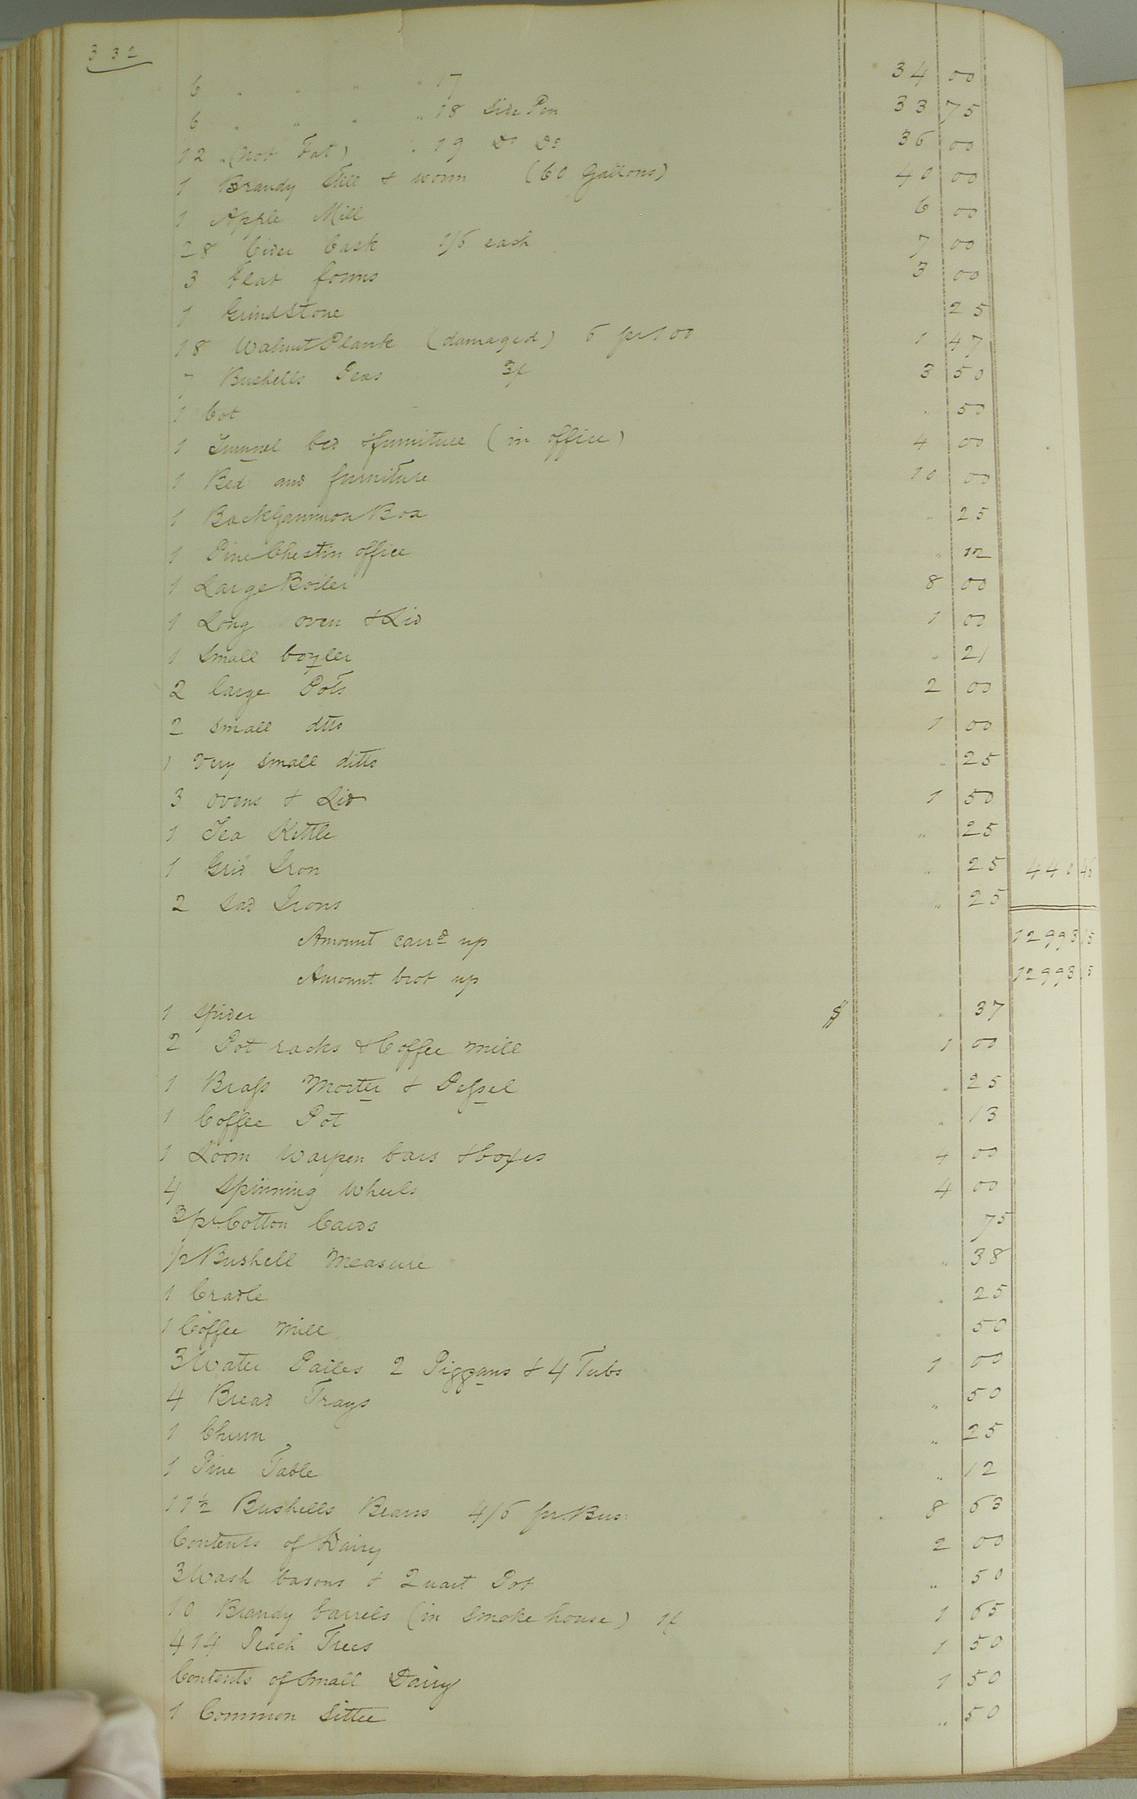 332
6 " " " " 17 34 00
6 " " " " 18 Side Pen 33 75
12 " (not Fat) " 19 Do Do 36 00
1 Brandy Still & worm (60 Gallons) 40 00
1 Apple Mill 6 00
28 Cider Cask 1/6 each 7 00
3 Flat forms 3 00
1 Grindstone 25
18 Walnut Plank (damaged) 6 pr 100 1 47
7 Bushells Peas 3/ 3 50
1 Cot " 50
1 Trunnel bed & furniture (in office) 4 00
1 Bed and furniture 10 00
1 Backgammon Box " 25
1 Pine Chest in office " 12
1 Large Boiler 8 00
1 Long oven & Lid 1 00
1 Small boyler " 21
2 large Pots 2 00
2 small dtto 1 00
1 Very small ditto " 25
3 ovens & Lid 1 50
1 Tea Kettle " 25
1 Grid Iron " 25 440 46
2 Sad Irons " 25
Amount carrd up 12993 5
Amount brot up 12993 5
1 Spider $ " 37
2 Pot racks & Coffee mill 1 00
1 Brass Morter & Pessel " 25
1 Coffee Pot " 13
1 Loom Warpen bars & boxes 4 00
4 Spinning Wheels 4 00
3 pr Cotton Cards 75
1/2 Bushell Measure " 38
1 Cradle " 25
1 Coffee Mill " 50
3 Water Pailes 2 Piggans & 4 Tubs 1 00
4 Bread Trays " 50
1 Churn " 25
1 Pine Table " 12
11 1/2 Bushells Beans 4/6 pr. Bus. 8 63
Contents of Dairy 2 00
3 Wash basons & 2 uart Pot " 50
10 Brandy barrels (in Smoke house) 1/ 1 65
414 Peach Trees 1 50
Contents of Small Dairy 1 50
1 Common Sittee " 50